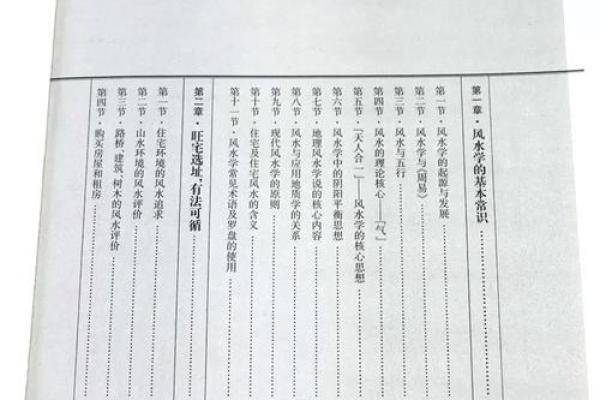 第一章·风水学的基本常识
第一节·风水学的起源与发展
第二节·风水学与《周易》
第三节·风水与五行
第四节·风水的理论核心——「气」
第五节·「天人合一」——风水学的核心思想
第六节·风水学中的阴阳平衡思想
第七节·地理风水学说的核心内容
第八节·风水与应用地质学的关系
第九节·现代风水学的原则
第十节·住宅及住宅风水的含义
第十一节·风水学常见术语及罗盘的使用
第二章·旺宅选址,有法可循
第一节·住宅环境的风水追求
第二节·山水环境的风水评价
第三节·路桥、建筑、树木的风水评价
第四节·购买房屋和租房